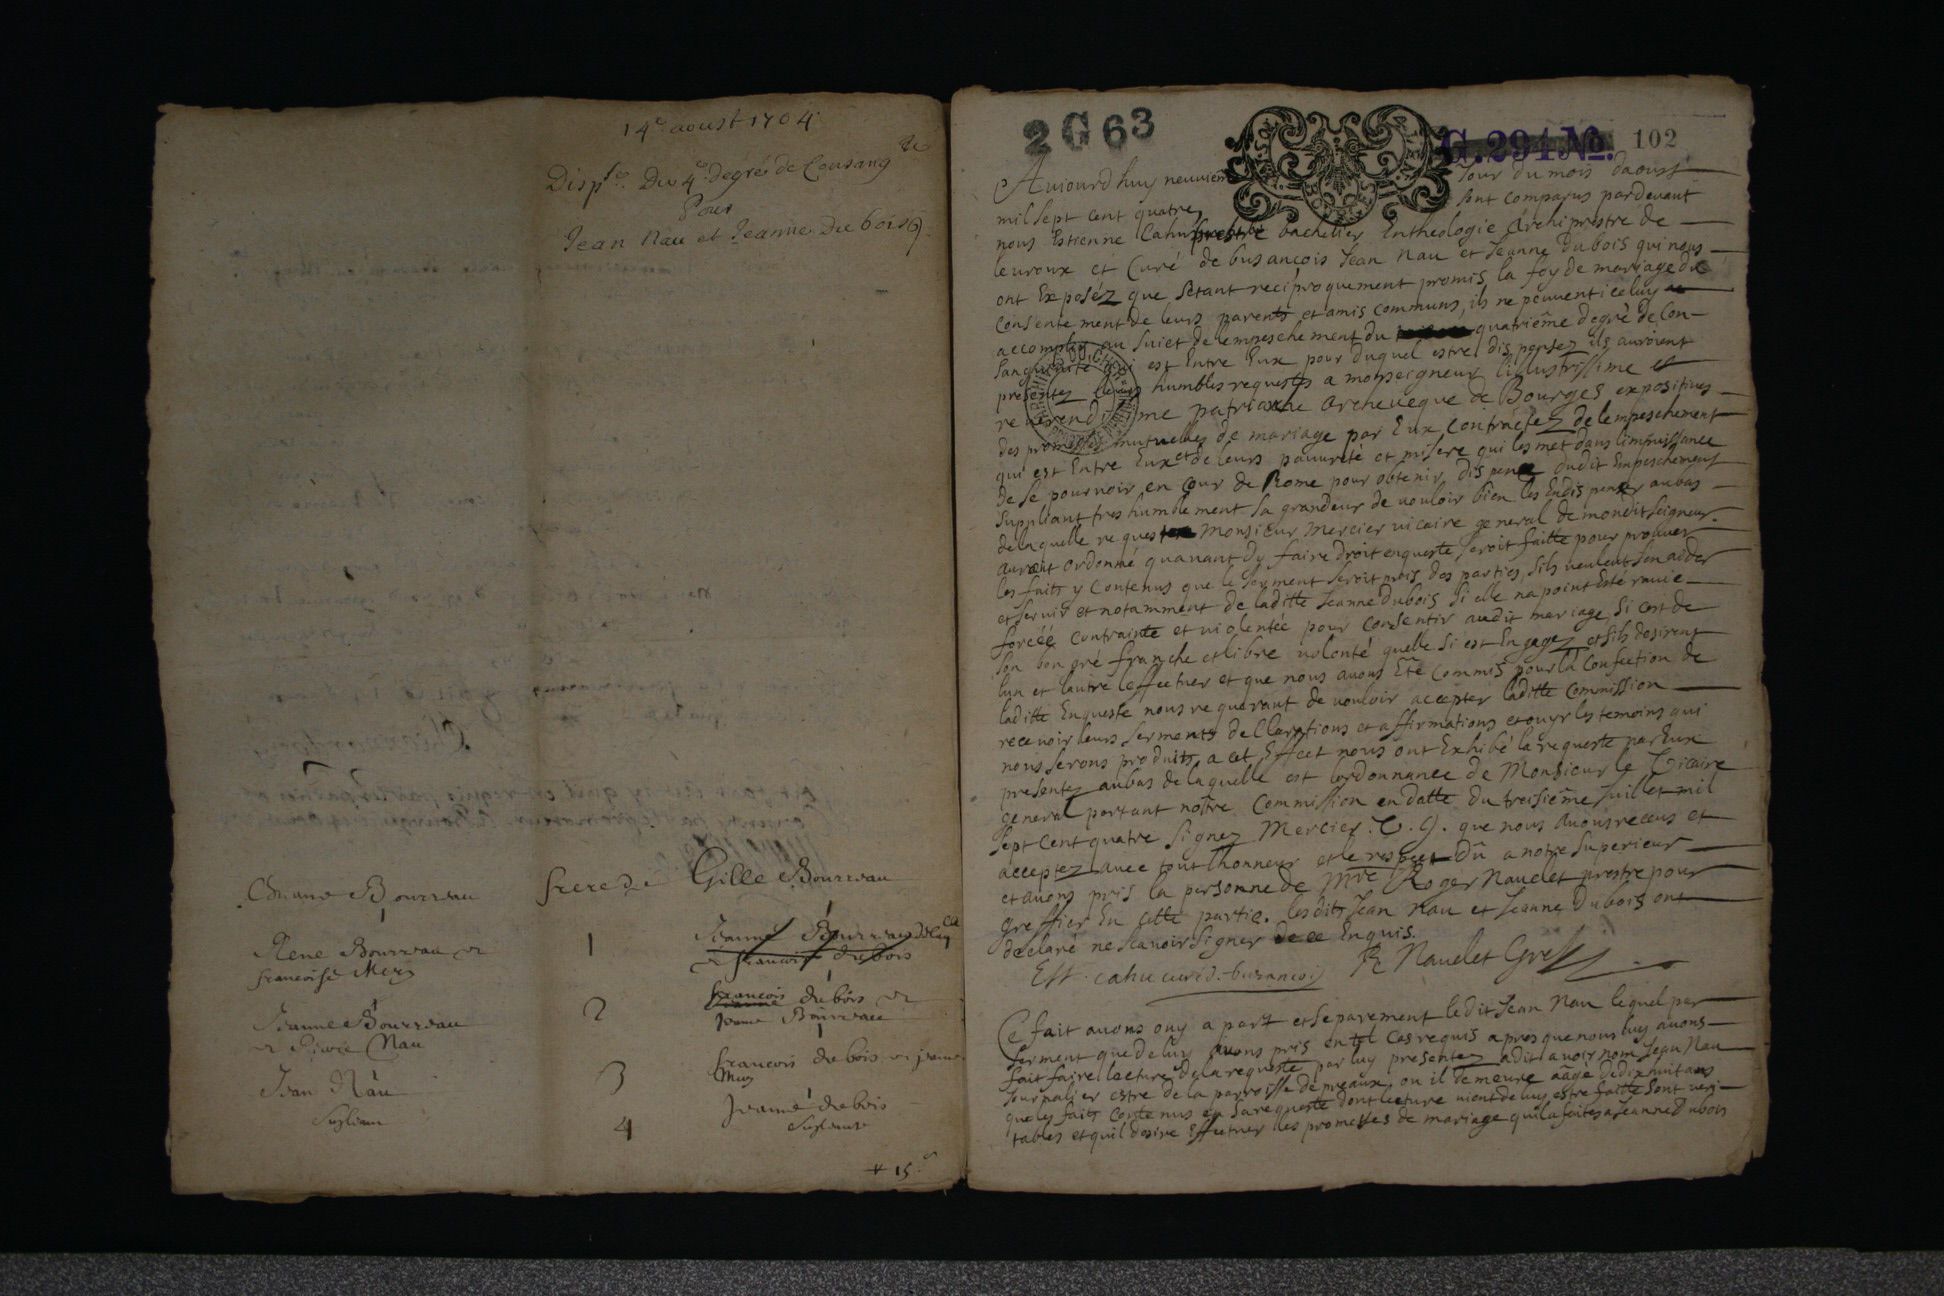 14e aoust 1704
Dispce Du 4e degré de Consangté
Pour
Jean Nau et Jeanne Du bois
Bourreau frere de Gille Bourreau
René Bourreau et 1 Jeanne Bourreau
françoise Mery et françois dubois
Jeanne Bourreau 2 françois dubois et
et Pierre Nau Jeanne Bourreau
Jean Nau 3 françois dubois et jeanne
Mery
Supliant 4 Jeanne dubois
Supliante
15
2 G 63
G. 294 No. 102
Aujourdhuy neuvieme Jour du mois daoust
mil sept cent quatre, sont comparus pardevant
nous Estienne Cahu prestre bachelier Entheologie Archiprestre de
leuroux et Curé de busançois Jean Nau et Jeanne Dubois qui nous
ont Exposéz que sétant reciproquement promis la foy de mariage du
consentement de leurs parents et amis communs, ils ne peuvent iceluy
accomplir au suiet de lempeschement du quatriême degré de Con-
sanguinité qui est Entre Eux pour duquel estre dispensez ils auroient
présentez leurs humbles requestes a monseigneur lillustrissime et
reverendissime patriarche archeveque de Bourges expositives
des promesses mutuelles de mariage par Eux contractez de lempeschement
qui est Entre Eux et de leurs pauvreté et misere qui les met dans limpuissance
de se pourvoir en cour de Rome pour obtenir dispence dudit Empeschement
suppliant tres humblement sa grandeur de vouloir bien les Endispenser aubas
delaquelle requeste Monsieur Mercier vicaire general de monditseigneur
auroit ordonné quavant dy faire droit enqueste seroit faitte pour prouver
les faits y contenus que le serment seroit pris des parties, sils veulent sen aider
et servir et notamment de laditte Jeanne Dubois si elle na point esté ravie
forcée contrainte et violentée pour consentir audit mariage, si cest de
son bon gré franche et libre volonté quelle si est Engagez et sils desirent
lun et lautre leffectuer et que nous avons Eté commis pour la confection de
laditte Enqueste nous requerant de vouloir accepter laditte commission
recevoir leurs serments declarations et affirmations et ouyr les temoins qui
nous serons produits, a cet Effect nous ont Exhibé la requeste par Eux
présentez aubas de laquelle est lordonnance de Monsieur le Vicaire
general portant nostre Commission en datte du troisiême Juillet mil
sept cent quatre signez Mercier. V. G. que nous avons receus et
acceptez avec tout lhonneur et le respect Dû a notre superieur
et avons pris la personne de Mre Roger Naudet prestre pour
greffier En cette partie. lesdits Jean Nau et Jeanne Dubois ont
declaré ne scavoir signer de ce Enquis.
Est. Cahu curé d. busançois R Naudet Greff
Ce fait avons ouy a part et separement ledit Jean Nau lequel par
serment que de luy avons pris en tel cas requis apres que nous luy avons
fait faire lecture de la requeste par luy presentez a dit avoir nom Jean Nau
Journalier estre de la parroisse de preaux ou il demeure aagé de dixhuit ans
que les faits contenus en sa requeste dont lecture vient de luy estre faitte sont veri-
tables et quil desire Effectuer les promesses de mariage quil a faites a Jeanne Dubois